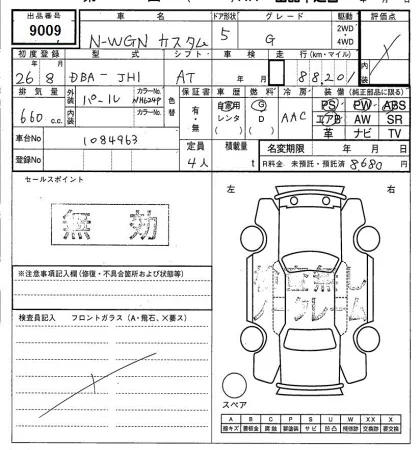 出品番号 車名 ドア形状 グレード 駆動 評価点
9009 N-WGN カスタム 5 G 2WD・4WD
初度登録 型式 シフト 車検 走行(km・マイル) 内装
26年 8月 DBA-JH1 AT 年 月 88,201
排気量 外装 パール カラーNo. NH624P 色替 保証書 車歴 燃料 冷房 装備(純正部品に限る)
660 c.c. 内装 カラーNo. 有・無 自家用 レンタ ( ) G D ( ) AAC PS PW ABS
エアB AW SR
革 ナビ TV
車台No 1084963 定員 4人 積載量 t 名変期限 年 月 日
登録No R料金 未預託・預託済 8,680円
セールスポイント
無効
左 右
保証無し
ノークレーム
※注意事項記入欄(修復・不具合箇所および状態等)
検査員記入 フロントガラス(A・飛石、×要ス)
スペア
A B C P S U W XX X
線キズ 要板金 腐蝕 要塗装 サビ 凹凸 補修跡 交換跡 要交換